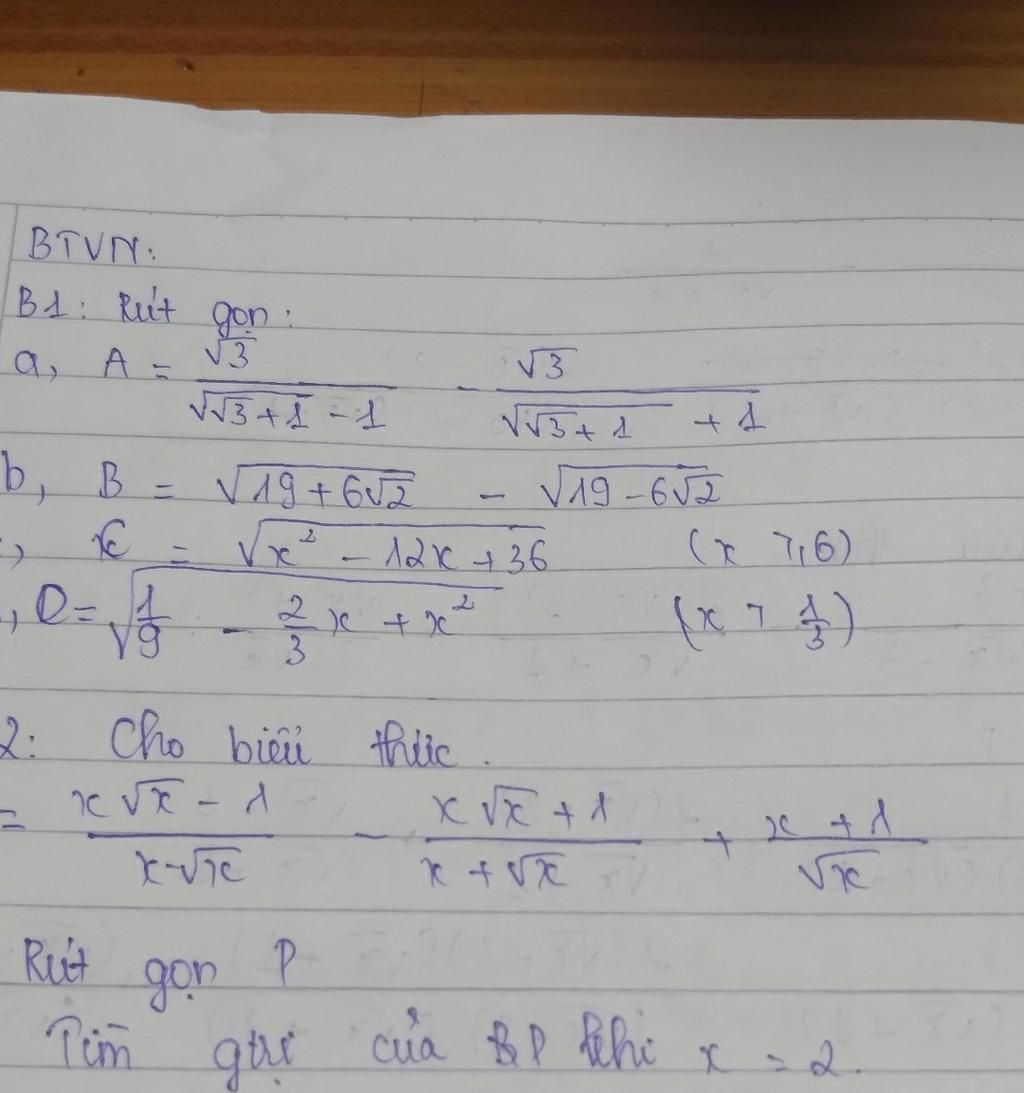 BTVN:
B1: Rút gọn:
a, A = √3/(√(√3+1) - 1) - √3/(√(√3+1) + 1)
b, B = √(19+6√2) - √(19-6√2)
, C = √(x² - 12x + 36) (x ⩾ 6)
, D = √(1/9 - 2/3 x + x²) (x > 1/3)
2: Cho biểu thức.
= (x√x - 1)/(x-√x) - (x√x + 1)/(x + √x) + (x + 1)/√x
Rút gọn P
Tìm gtrị của BP khi x = 2.